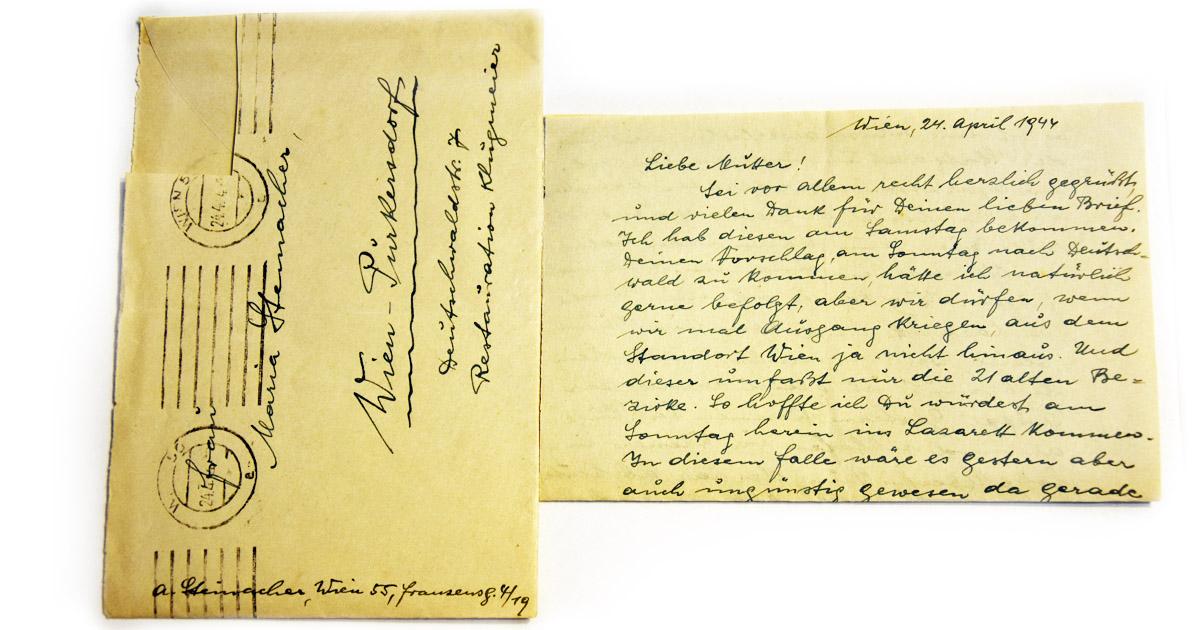 Frau
Maria Steinacher,
Wien - Purkersdorf
Deutschwaldstr. 7
Restauration Klugmeier
A. Steinacher, Wien 55, Franzensg. 4/19
WIEN
24.4.4
24.4
Wien, 24. April 1944
Liebe Mutter!
Sei vor allem recht herzlich gegrüßt,
und vielen Dank für Deinen lieben Brief.
Ich hab diesen am Samstag bekommen.
Deinen Vorschlag, am Sonntag nach Deutsch-
wald zu kommen, hätte ich natürlich
gerne befolgt, aber wir dürfen, wenn
wir mal Ausgang kriegen, aus dem
Standort Wien ja nicht hinaus. Und
dieser umfaßt nur die 21 alten Be-
zirke. So hoffte ich Du würdest am
Sonntag herein ins Lazarett kommen.
In diesem Falle wäre es gestern aber
auch ungünstig gewesen da gerade